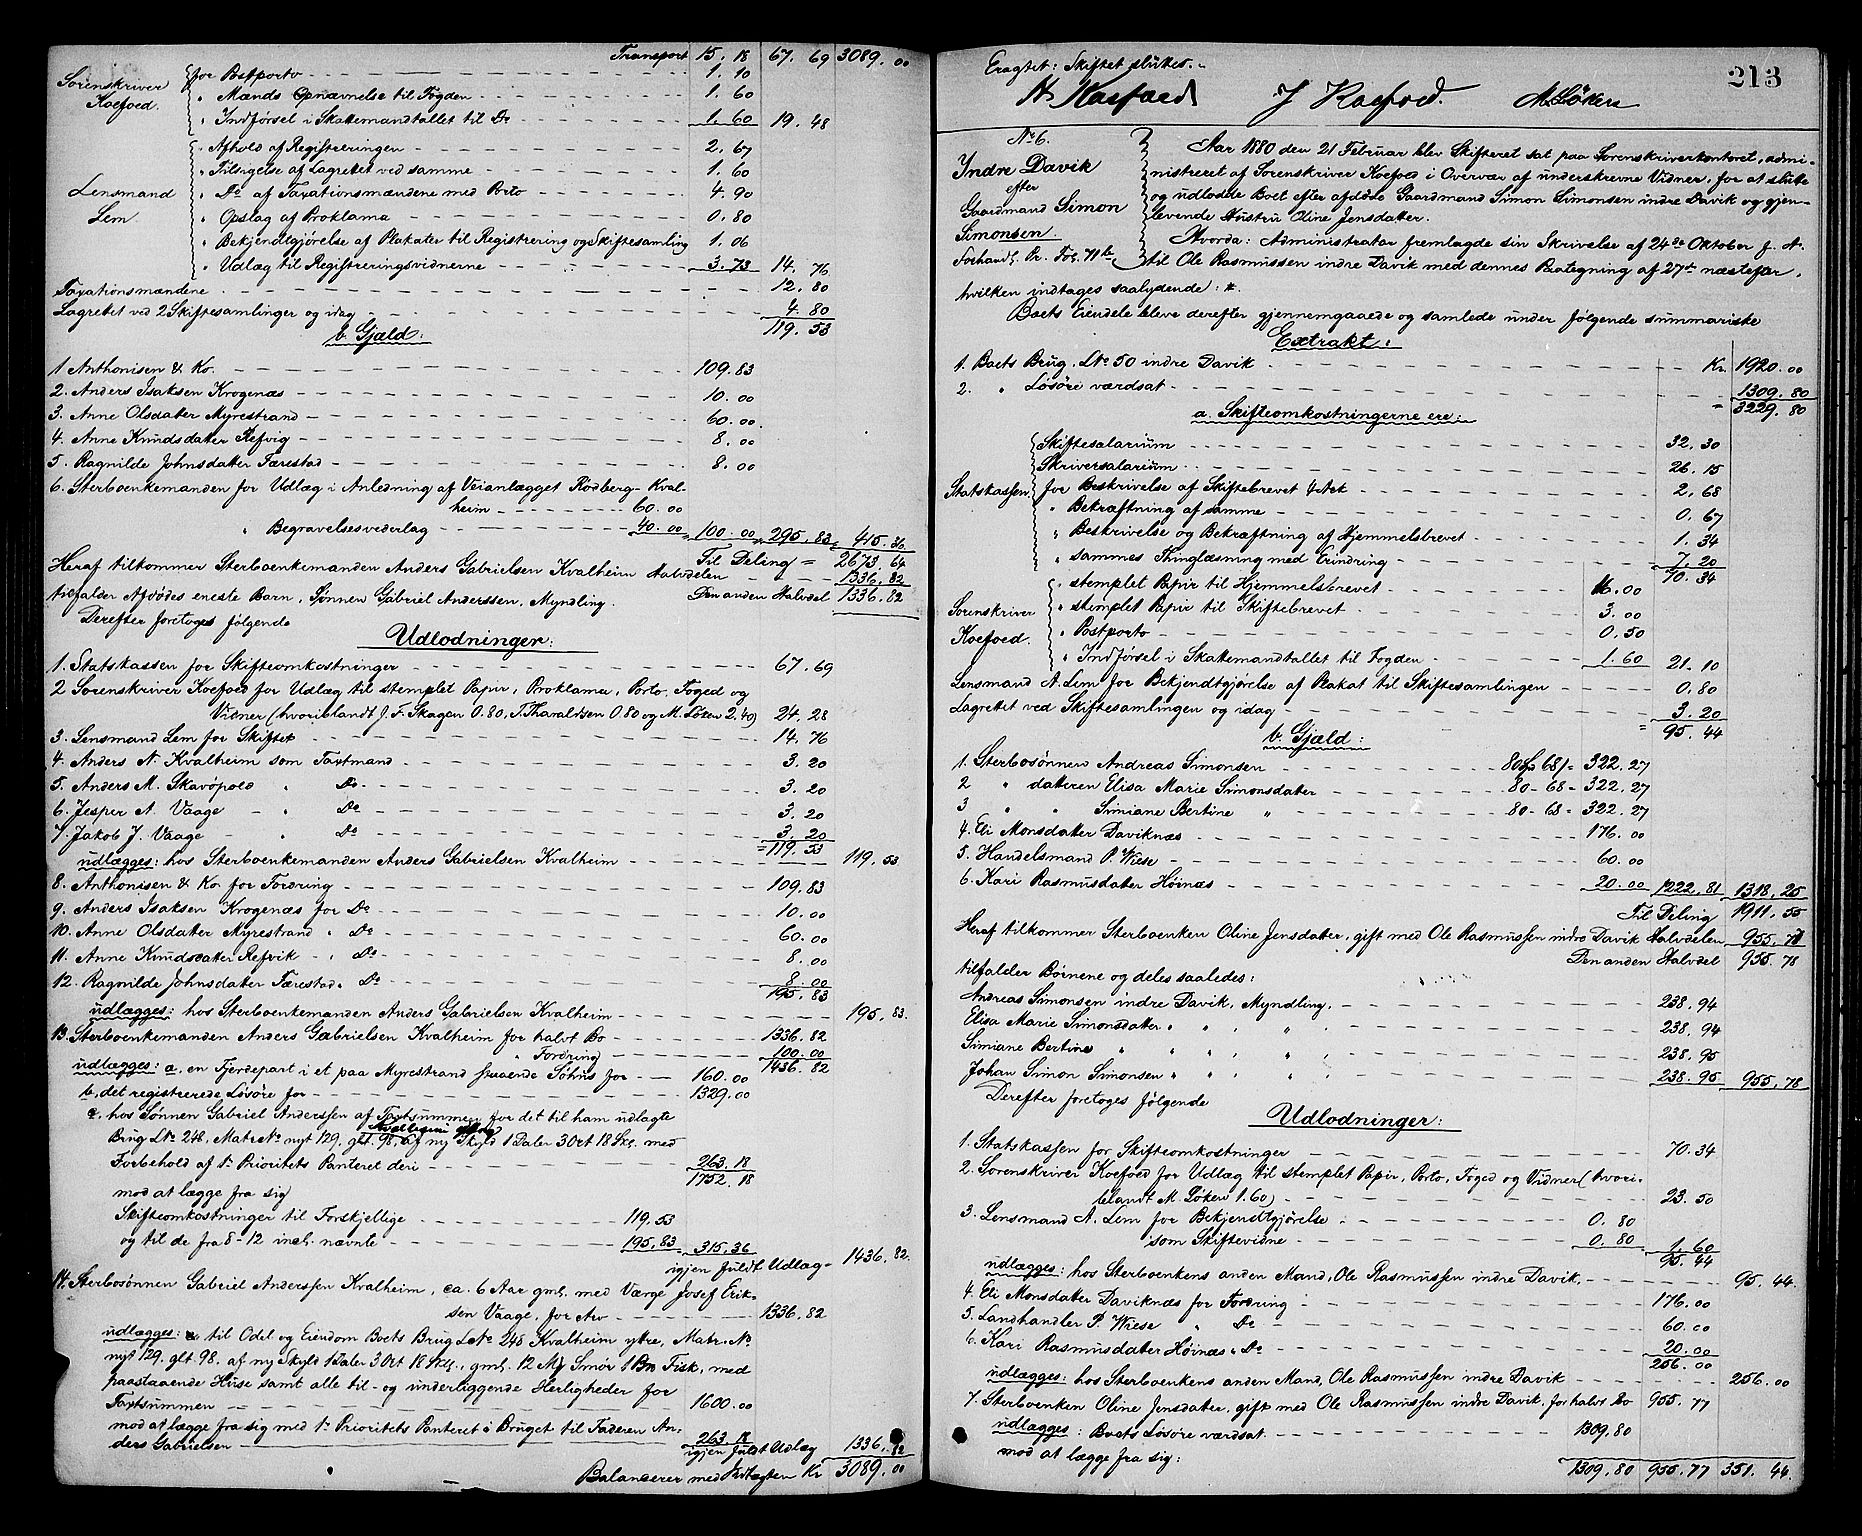 Transport 15. 18 67. 69 3089. 00
Sorenskriver Koefoed.
for Postporto 1. 10
" Mænds Opnævnelse til Fogden 1. 60
" Indførsel i Skattemandtallet til Do 1. 60 19. 48
Lensmand Lem.
" Afhold af Registreringen 2. 67
" Tilsigelse af Lagrettet ved samme 1. 60
" Do af Taxationsmændene med Porto 4. 90
" Opslag af Proklama 0. 80
" Bekjendtgjørelse af Plakater til Registrering og Skiftesamling 1. 06
" Udlæg til Registreringsvidnerne 3. 73 14. 76
Taxationsmændene 12. 80
Lagrettet ved 2 Skiftesamlinger og idag 4. 80
119. 53
b. Gjæld:
1 Anthonisen & Ko. 109. 83
2. Anders Isaksen Krogenæs 10. 00
3. Anne Olsdatter Myrestrand 60. 00.
4. Anne Knudsdatter Refvig 8. 00
5. Ragnilde Johnsdatter Færestad 8. 00
6. Sterboenkemanden for Udlæg i Anledning af Veianlægget Rødberg-Kval-
heim 60. 00
" Begravelsesvederlag 40. 00 = 100. 00 = 295. 83 = 415. 36.
Til Deling = 2673. 64
Heraf tilkommer Sterboenkemanden Anders Gabrielsen Kvalheim Halvdelen 1336. 82
Den anden Halvdel 1336. 82
tilfalder Afdødes eneste Barn, Sønnen Gabriel Anderssen, Myndling.
Derefter foretoges følgende
Udlodninger:
1. Statskassen for Skifteomkostninger 67. 69
2 Sorenskriver Koefoed for Udlæg til stemplet Papir, Proklama, Porto, Foged og
Vidner (hvoriblandt J. F. Skagen 0.80, T. Tharaldsen 0.80 og M. Löken 2.40) 24. 28
3. Lensmand Lem for Skiftet 14. 76
4. Anders N. Kvalheim som Taxtmand 3. 20
5. Anders M. Skavøpold " Do 3. 20
6. Jesper A. Vaage " Do 3. 20
7. Jakob J. Vaage " Do 3. 20
= 119. 53
udlægges: hos Sterboenkemanden Anders Gabrielsen Kvalheim 119. 53
8. Anthonisen & Ko. for Fordring 109. 83
9. Anders Isaksen Krogenæs for Do 10. 00
10. Anne Olsdatter Myrestrand " Do 60. 00
11. Anne Knudsdatter Refvik " Do 8. 00
12. Ragnilde Johnsdatter Færestad " Do 8. 00
195. 83
udlægges: hos Sterboenkemanden Anders Gabrielsen Kvalheim 195. 83.
13. Sterboenkemanden Anders Gabrielsen Kvalheim for halvt Bo 1336. 82
" Fordring 100. 00
1436. 82
udlægges: a, en Fjerdepart i et paa Myrestrand staaende Söhus for 160. 00
b, det registrerede Lösöre for 1329. 00
c. hos Sønnen Gabriel Anderssen af Taxtsummen for det til ham udlagte
Brug LNo 248, Matr No nyt 129, glt. 98, af ny Skyld 1 Daler 3 Ort 18 Skl. med
Forbehold af 1ste Prioritets Panteret deri 263. 18
1752. 18
mod at lægge fra sig
Skifteomkostninger til Forskjellige 119. 53
og til de fra 8-12 incl. nævnte 195. 83 = 315. 36
igjen fuldt Udlæg = 1436. 82.
14. Sterbosønnen Gabriel Anderssen Kvalheim, ca. 6 Aar gml. med Værge Josef Erik-
sen Vaage, for Arv 1336. 82
udlægges: til Odel og Eiendom Boets Brug LNo 248 Kvalheim ytre, Matr. No
nyt 129, glt. 98, af ny Skyld 1 Daler 3 Ort 18 Skl., gml. 12 Mk Smör 1 Bm Fisk, med
paastaaende Huse samt alle til- og underliggende Herligheder for
Taxtsummen 1600. 00
mod at lægge fra sig med 1ste Prioritets Panteret i Bruget til Faderen An-
ders Gabrielsen 263. 18
igjen fuldt Udlæg 1336. 82
Balancerer med Indtægten Kr 3089. 00
213
Eragtet: Skiftet sluttet.
H Koefoed J Koefoed. M Löken
No 6.
Indre Davik
efter
Gaardmand Simon
Simonsen.
Forhandl. Pr. Fol. 71
Aar 1880 den 21 Februar blev Skifteret sat paa Sorenskriverkontoret, admi-
nistreret af Sorenskriver Koefoed i Overvær af underskrevne Vidner, for at slutte
og udlodde Boet efter afdøde Gaardmand Simon Simonsen indre Davik og gjen-
levende Hustru Oline Jensdatter.
Hvorda: Administrator fremlagde sin Skrivelse af 24de Oktober f. A.
til Ole Rasmussen indre Davik med dennes Paategning af 27de næstefter,
hvilken indtages saalydende: *.
Boets Eiendele bleve derefter gjennemgaaede og samlede under følgende summariske
Extrakt:
1. Boets Brug, LNo 50 indre Davik Kr. 1920. 00
2. " Løsøre værdsat 1309. 80
= 3229. 80
a. Skifteomkostningerne ere:
Statskassen
Skiftesalarium 32. 30
Skriversalarium 26. 15
for Beskrivelse af Skiftebrevet 4 Ark 2. 68
" Bekræftning af samme 0. 67
" Beskrivelse og Bekræftning af Hjemmelsbrevet 1. 34
" sammes Thinglæsning med Erindring 7. 20
70. 34
Sorenskriver Koefoed.
" stemplet Papir til Hjemmelsbrevet 16. 00
" stemplet Papir til Skiftebrevet 3. 00
" Postporto 0. 50
" Indførsel i Skattemandtallet til Fogden 1. 60 21. 10
Lensmand A. Lem for Bekjendtgjørelse af Plakat til Skiftesamlingen 0. 80
Lagrettet ved Skiftesamlingen og idag 3. 20
= 95. 44
b. Gjæld:
1. Sterbosønnen Andreas Simonsen 80 Sp 68 / = 322. 27
2 " datteren Elisa Marie Simonsdatter 80 - 68 = 322. 27
3 " " Simiane Bertine " 80 - 68 = 322. 27
4. Eli Monsdatter Daviknæs 176. 00
5. Handelsmand P. Wiese 60. 00
6. Kari Rasmusdatter Höinæs 20. 00 1222. 81 1318. 25
Til Deling 1911. 55
Heraf tilkommer Sterboenken Oline Jensdatter, gift med Ole Rasmussen indre Davik Halvdelen 955. 77
Den anden Halvdel 955. 78
tilfalder Börnene og deles saaledes:
Andreas Simonsen indre Davik, Myndling. 238. 94
Elisa Marie Simonsdatter " " , " , 238. 94
Simiane Bertine " " " , " , 238. 95
Johan Simon Simonsen " " , " , 238. 95 955. 78
Derefter foretoges følgende
Udlodninger:
1. Statskassen for Skifteomkostninger 70. 34
2. Sorenskriver Koefoed for Udlæg til stemplet Papir, Porto, Foged og Vidner (hvori-
blandt M. Löken 1.60) 23. 50
3. Lensmand A. Lem for Bekjendtgjørelse 0. 80
som Skiftevidne 0. 80 1. 60
95. 44
udlægges: hos Sterboenkens anden Mand, Ole Rasmussen indre Davik. 95. 44.
4. Eli Monsdatter Daviknæs for Fordring 176. 00
5. Landhandler P. Wiese " Do 60. 00
6. Kari Rasmusdatter Höinæs " Do 20. 00
256. 00
udlægges: hos Sterboenkens anden Mand, Ole Rasmussen indre Davik 256. 00
7. Sterboenken Oline Jensdatter, gift med Ole Rasmussen indre Davik, for halvt Bo 955. 77
udlægges: Boets Løsøre værdsat 1309. 80
mod at lægge fra sig:
1309. 80 955. 77 351. 44.